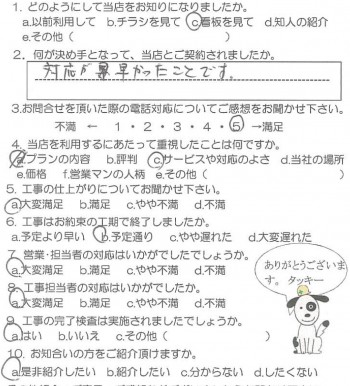 1. どのようにして当店をお知りになりましたか。
a.以前利用して b.チラシを見て c.看板を見て d.知人の紹介
e.その他（　　　　　　　　　　）
2. 何が決め手となって、当店とご契約されましたか。
対応が素早かったことです。
3.お問合せを頂いた際の電話対応についてご感想をお聞かせ下さい。
不満 ← 1・2・3・4・5 →満足
4. 当店を利用するにあたって重視したことは何ですか。
a.プランの内容 b.評判 c.サービスや対応のよさ d.当社の場所
e.価格 f.営業マンの人柄 e.その他（　　　　　　　　）
5. 工事の仕上がりについてお聞かせ下さい。
a.大変満足 b.満足 c.やや不満 d.不満
6. 工事はお約束の工期で終了しましたか。
a.予定より早い b.予定通り c.やや遅れた d.大変遅れた
7. 営業・担当者の対応はいかがでしたでしょうか。
a.大変満足 b.満足 c.やや不満 d.不満
ありがとうございま
す。 タッキー
8. 工事担当者の対応はいかがでしたか。
a.大変満足 b.満足 c.やや不満 d.不満
9. 工事の完了検査は実施されましたでしょうか。
a.はい b.いいえ c.その他（　　　　　　　）
10. お知合いの方をご紹介頂けますか。
a.是非紹介したい b.紹介したい c.分からない d.したくない